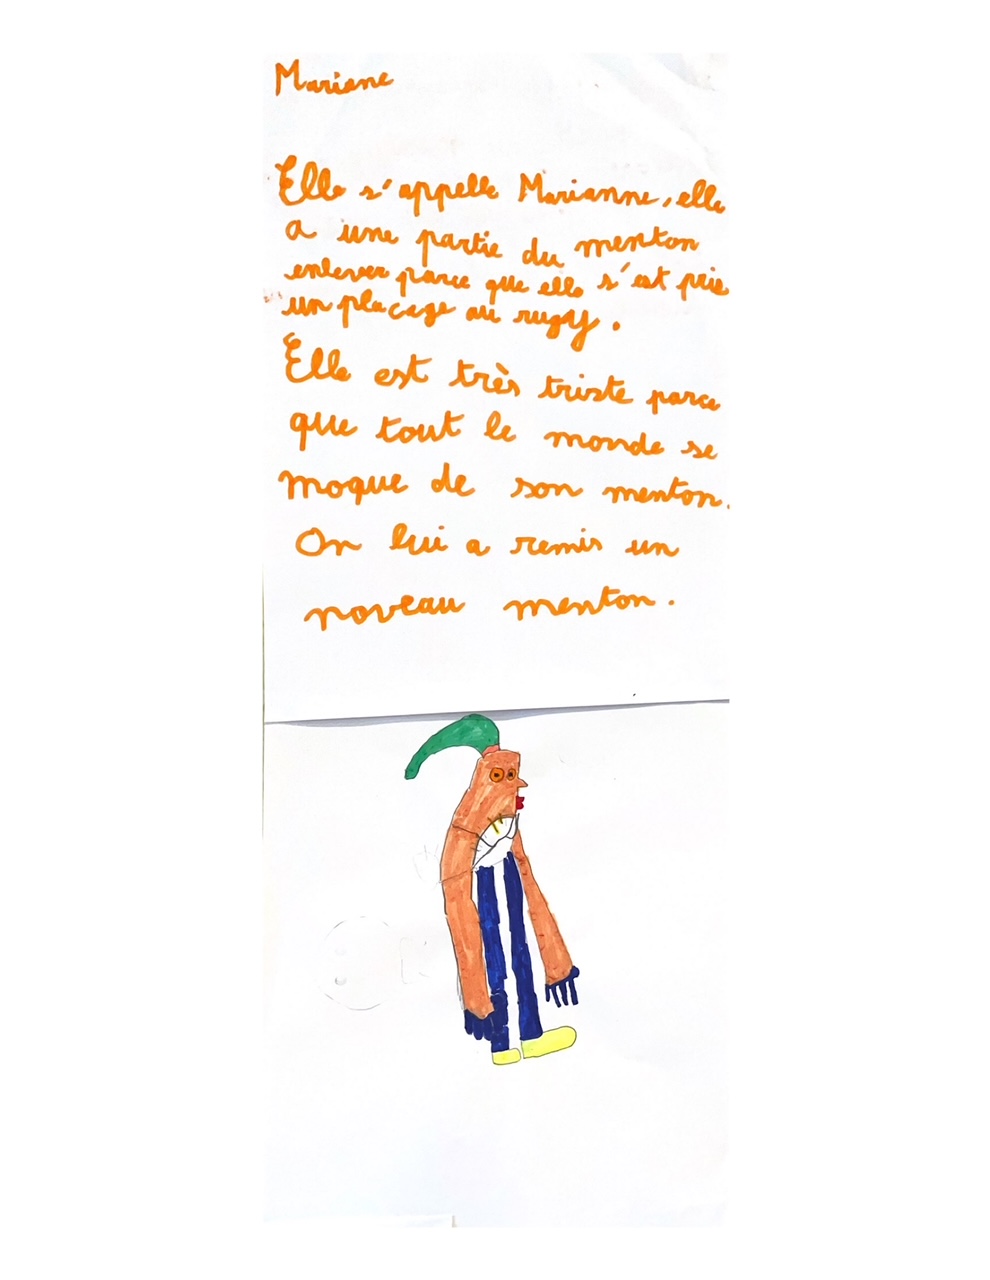 Mariane
Elle s'appelle Marianne, elle
a une partie du menton
enlever parce que elle s'est prie
un placage au rugy.
Elle est très triste parce
que tout le monde se
moque de son menton.
On lui a remis un
noveau menton.